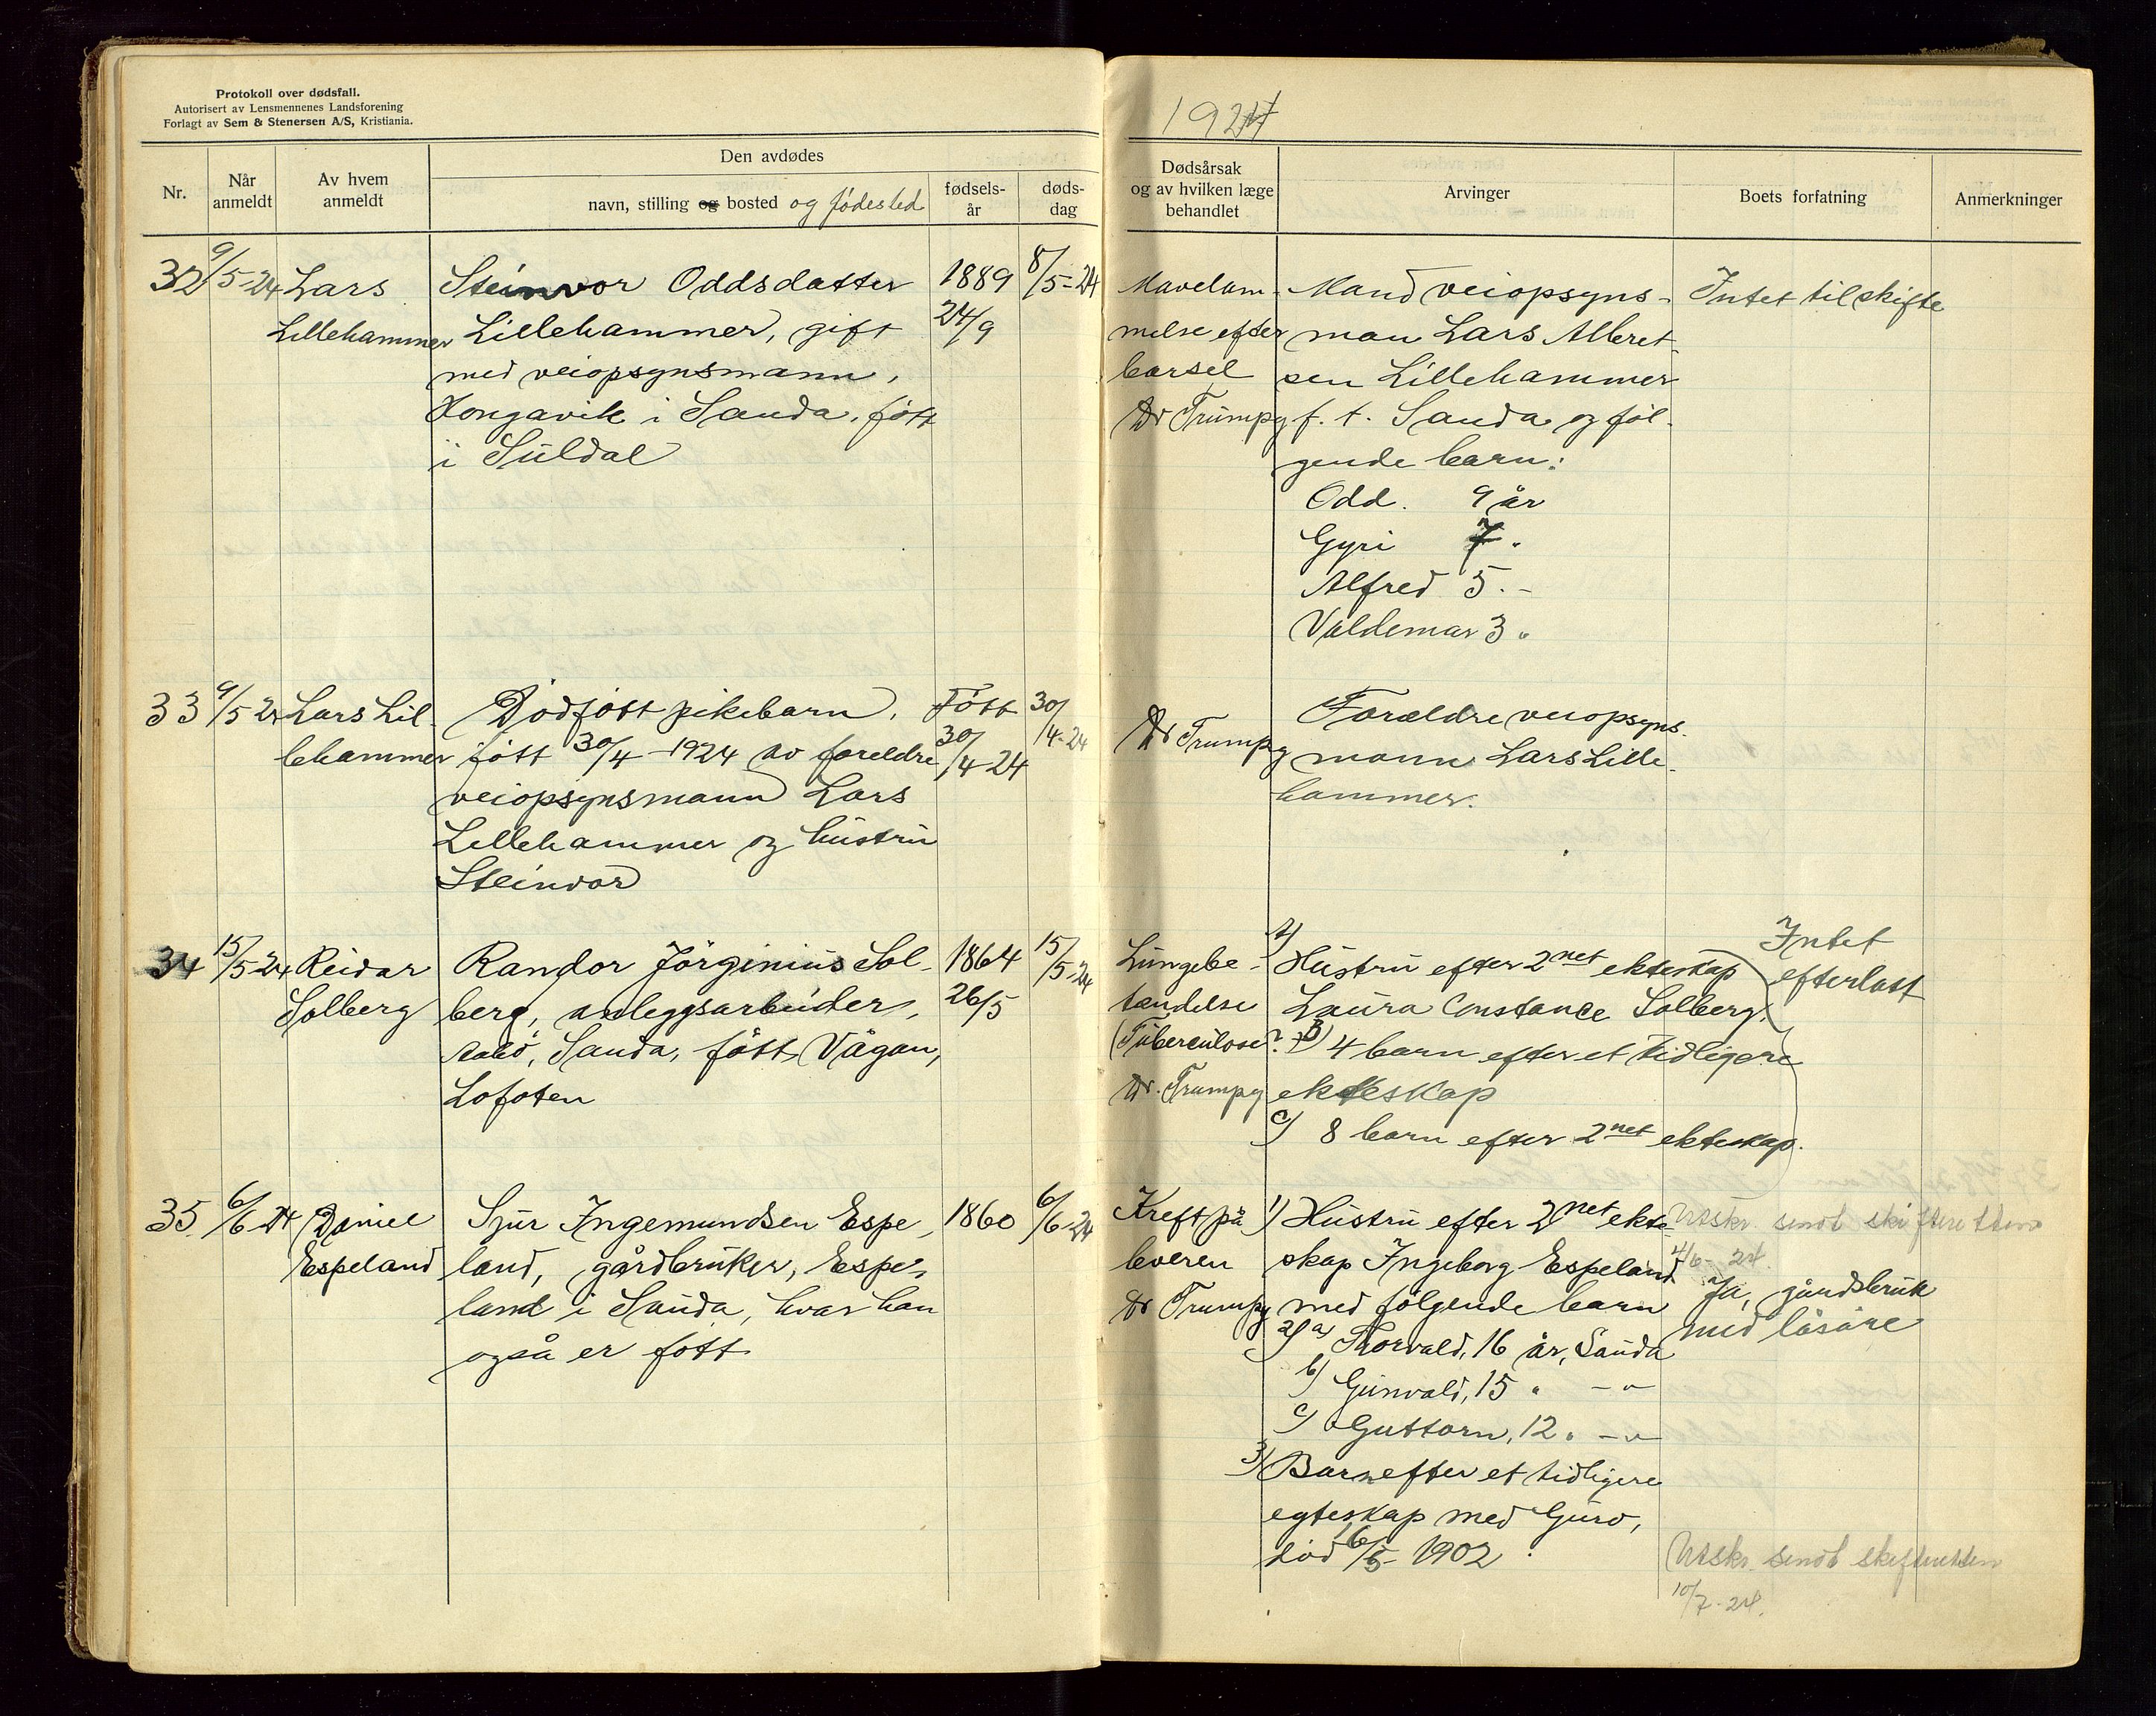 Protokoll over dødsfall.
Autorisert av Lensmennenes Landsforening
Forlagt av Sem & Stenersen A/S, Kristiania.
Nr.
Når anmeldt
Av hvem anmeldt
Den avdødes
navn, stilling og bosted og fødested
fødsels-år
døds-dag
32
9/5-24
Lars
Lillehammer
Steinvor Oddsdatter
Lillehammer, gift
med veiopsynsmann,
Hongavik i Sauda, født
i Suldal
1889
24/9
8/5-24
33
9/5 24
Lars Lil-
lehammer
Dødfött pikebarn,
född 30/4-1924 av foreldre
veiopsynsmann Lars
Lillehammer og hustru
Steinvor
Född
30/4-24
30/4-24
34
15/5-24
Reidar
Solberg
Randor Jörginius Sol-
berg, anleggsarbeider,
Sauda, född Vågan,
Lofoten
1864
26/5
15/5-24
35.
6/6-24
Daniel
Espeland
Sjur Ingemundsen Espe-
land, gårdbruker, Espe-
land i Sauda, hvor han
også er född
1860
6/6-24
1924
Dødsårsak
og av hvilken læge
behandlet
Arvinger
Boets forfatning
Anmerkninger
Mavelam-
melse efter
barsel
Dr Trumpy
Mand veiopsyns-
man Lars Albret-
sen Lillehammer
f. t. Sauda og föl-
gende barn:
Odd. 9 år
Gyri 7 "
Alfred 5 . -
Valdemar 3 "
Intet til skifte
Dr Trumpy
Forældre veiopsyns-
mann Lars Lille-
hammer.
Lungebe-
tendelse
(Tuberculose?)
Dr. Trumpy
A) Hustru efter 2net ekteskap
Laura Constance Solberg.
B) 4 barn efter et tidligere
ekteskap
C) 8 barn efter 2net ekteskap.
Intet
efterlatt
Kreft på
leveren
Dr Trumpy
1) Hustru efter 2net ekte-
skap Ingeborg Espeland
med følgende barn
2) a) Thorvald, 16 år, Sauda
b) Gunvald, 15 " - " -
c) Guttorm, 12 " - " -
3) Barn efter et tidligere
egteskap med Guro,
död 16/5-1902.
Utskr. sendt skifteretten
4/6-24.
Ja, gårdsbruk
med lösöre
Utskr. sendt skifteretten
10/7-24.